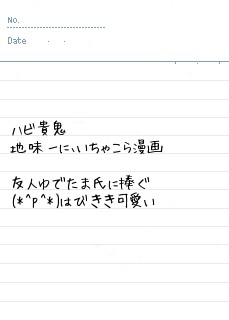 No.
Date . .
ハビ貴鬼
地味ーに、いちゃこら漫画
友人ゆでたま氏に捧ぐ
(*^p^*)はびきき可愛い